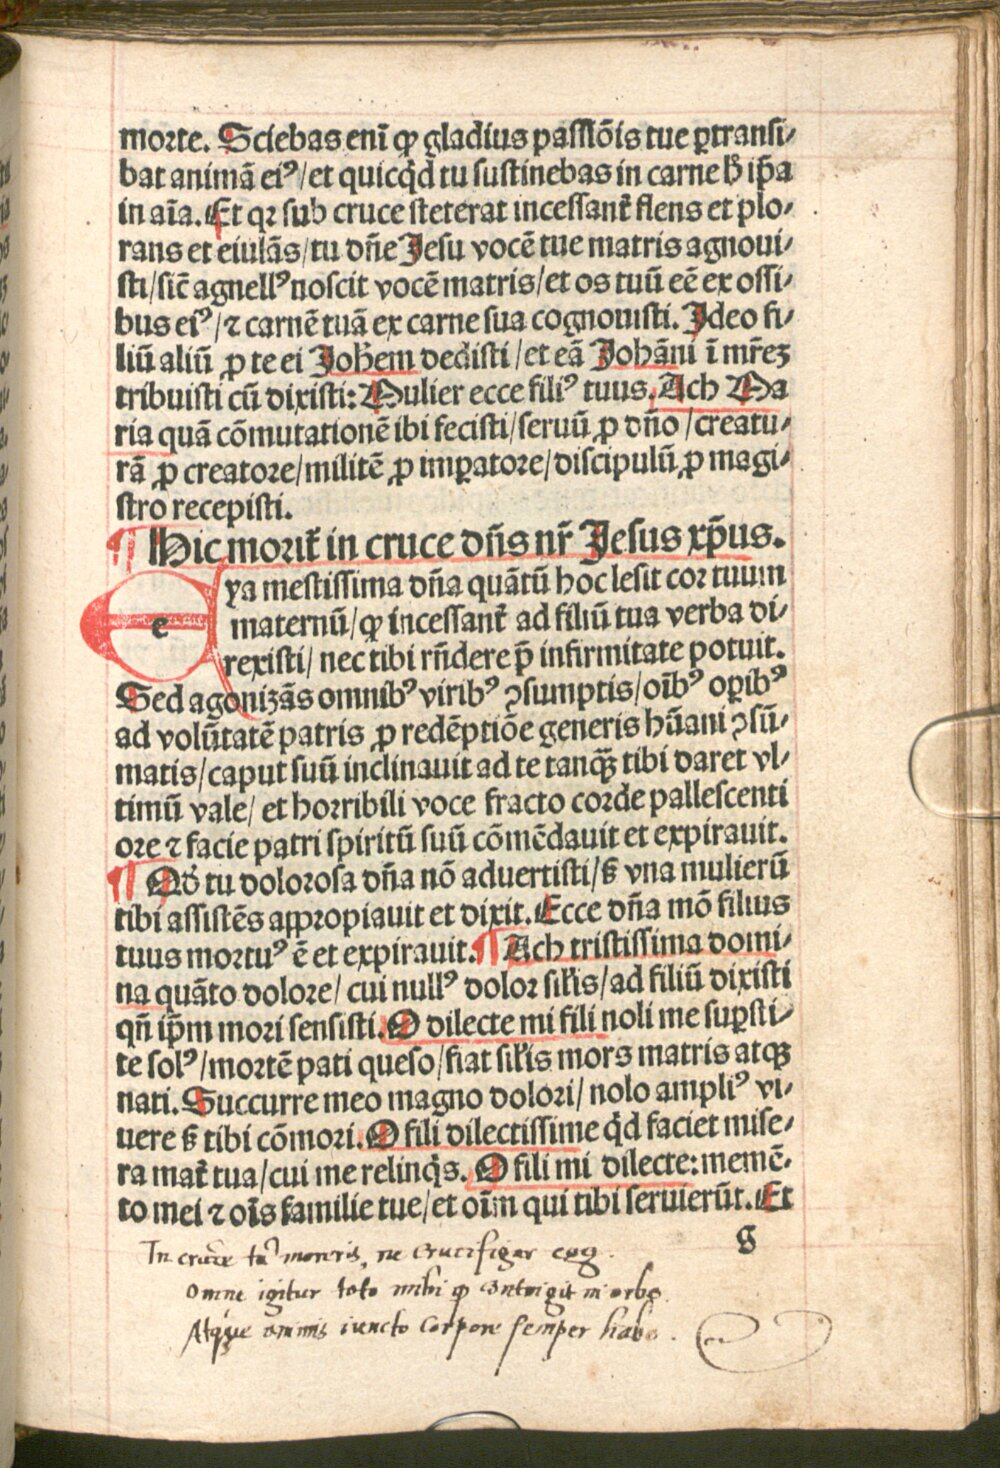 morte. Sciebas enī ꝙ gladius passiōis tue ꝑtransi⸗
bat animā eiꝰ/et quicq̇d tu sustinebas in carne h̄ ip̄a
in aīa. Et qꝛ sub cruce steterat incessant̄ flens et plo⸗
rans et eiulās/tu dn̄e Jesu vocē tue matris agnoui⸗
sti/sic̄ agnellꝰ noscit vocē matris/et os tuū eē ex ossi⸗
bus eiꝰ/⁊ carnē tuā ex carne sua cognouisti. Jdeo fi⸗
liū aliū ꝓ te ei Joh̄em dedisti/et eā Johāni ī mr̄eꝫ
tribuisti cū dixisti: Mulier ecce filiꝰ tuus. Ach Ma
ria quā cōmutationē ibi fecisti/seruū ꝓ dn̄o/creatu⸗
rā ꝓ creatore/militē ꝓ imꝑatore/discipulū ꝓ magi⸗
stro recepisti.
¶ Hic morit̄ in cruce dn̄s nr̄ Jesus xp̄us.
e ya mestissima dn̄a quātū hoc lesit cor tuum
maternū/ꝙ incessant̄ ad filiū tua verba di⸗
rexisti/nec tibi rn̄dere p̄ infirmitate potuit.
Sed agonizās omnibꝰ viribꝰ ꝯsumptis/oībꝰ oꝑibꝰ
ad volūtatē patris ꝓ redēptiōe generis hūani ꝯsū⸗
matis/caput suū inclinauit ad te tanqꝫ tibi daret vl⸗
timū vale/et horribili voce fracto corde pallescenti
ore ⁊ facie patri spiritū suū cōmēdauit et expirauit.
¶ Qđ tu dolorosa dn̄a nō aduertisti/ꞩ vna mulierū
tibi assistēs appropiauit et dixit. Ecce dn̄a mō filius
tuus mortuꝰ ē et expirauit. ¶ Ach tristissima domi⸗
na quāto dolore/cui nullꝰ dolor sil̄is/ad filiū dixisti
qn̄ ip̄m mori sensisti. O dilecte mi fili noli me suꝑsti⸗
te solꝰ/mortē pati queso/fiat sil̄is mors matris atqꝫ
nati. Succurre meo magno dolori/nolo ampliꝰ vi⸗
uere ꞩ tibi cōmori. O fili dilectissime q̇d faciet mise⸗
ra mat̄ tua/cui me relinq̇s. O fili mi dilecte: memē⸗
to mei ⁊ oīs familie tue/et oīm qui tibi seruierūt. Et
g
In cruce tu moreris, ne crucifigar ego.
Omne igitur toto mihi ꝙ contigit in orbe
Atque animis iuncto corpore semper habe.